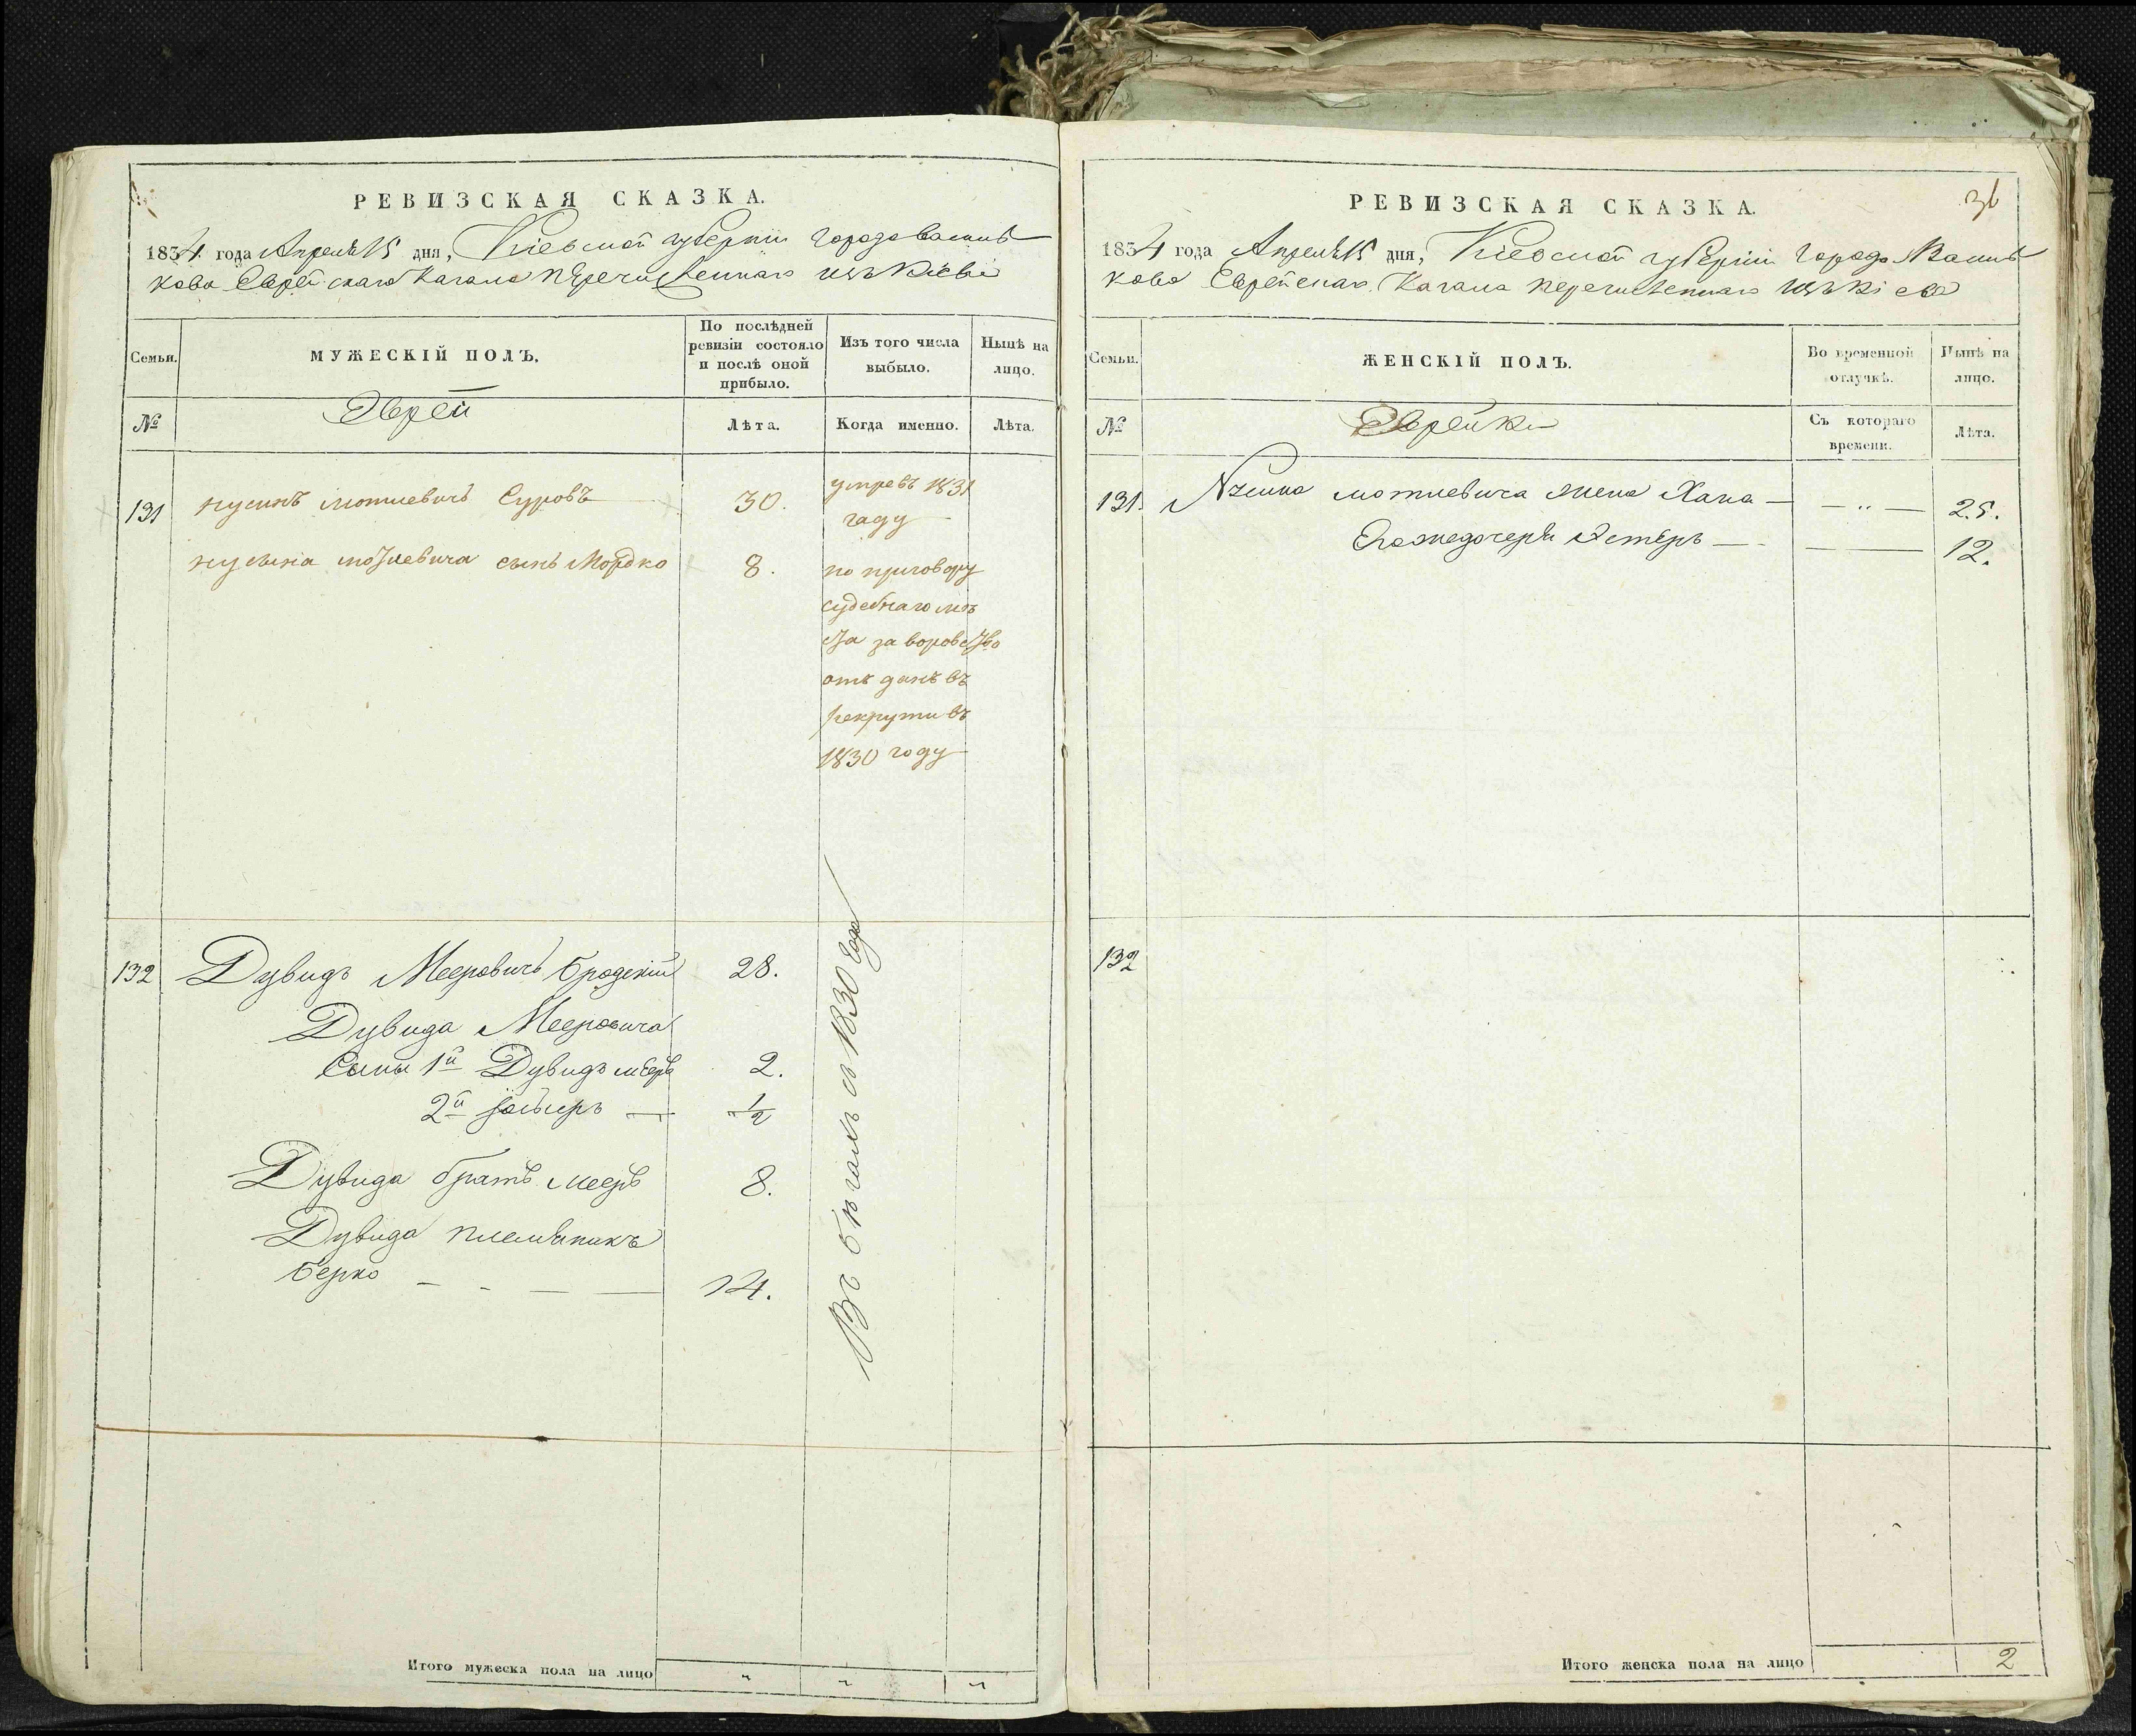 РЕВИЗСКАЯ СКАЗКА.
1834 года Апреля 15 дня, Кіевской губерніи города Василь
кова Еврейскаго Кагала перечисленнаго изъ Кіева
Семьи.
МУЖЕСКІЙ ПОЛЪ.
По послѣдней
ревизіи состояло
и послѣ оной
прибыло.
Изъ того числа
выбыло.
Нынѣ на
лицо.
№
Еврей
Лѣта.
Когда именно.
Лѣта.
131 нусинъ мотиевичъ Суровъ 30. умре въ 1831
гаду
нусина мотиевича сынъ Мордко 8. по приговору
судебнаго мѣ
ста за воровство
отъ данъ въ
рекруты въ
1830 году
132 Дувидъ Мееровичъ бродский 28.
Дувида Мееровича
Сыны 1й Дувидъ меер 2.
2й 1/2
Дувида братъ меерь 8.
Дувида племяникъ
берко 14.
Въ бѣгахъ с 1830 года
Итого мужеска пола на лицо " " "
36
РЕВИЗСКАЯ СКАЗКА.
1834 года Апреля 15 дня, Кіевской губерніи города Василь
кова Еврейскаго Кагала перечисленнаго изъ Кіева
Семьи.
ЖЕНСКІЙ ПОЛЪ.
Во временной
отлучкѣ.
Нынѣ на
лицо.
№
Еврейки
Съ котораго
времени.
Лѣта.
131. Нусина мотиевича жена Хана — — " — 25.
Его же дочерь Эстеръ — — 12.
132
Итого женска пола на лицо 2